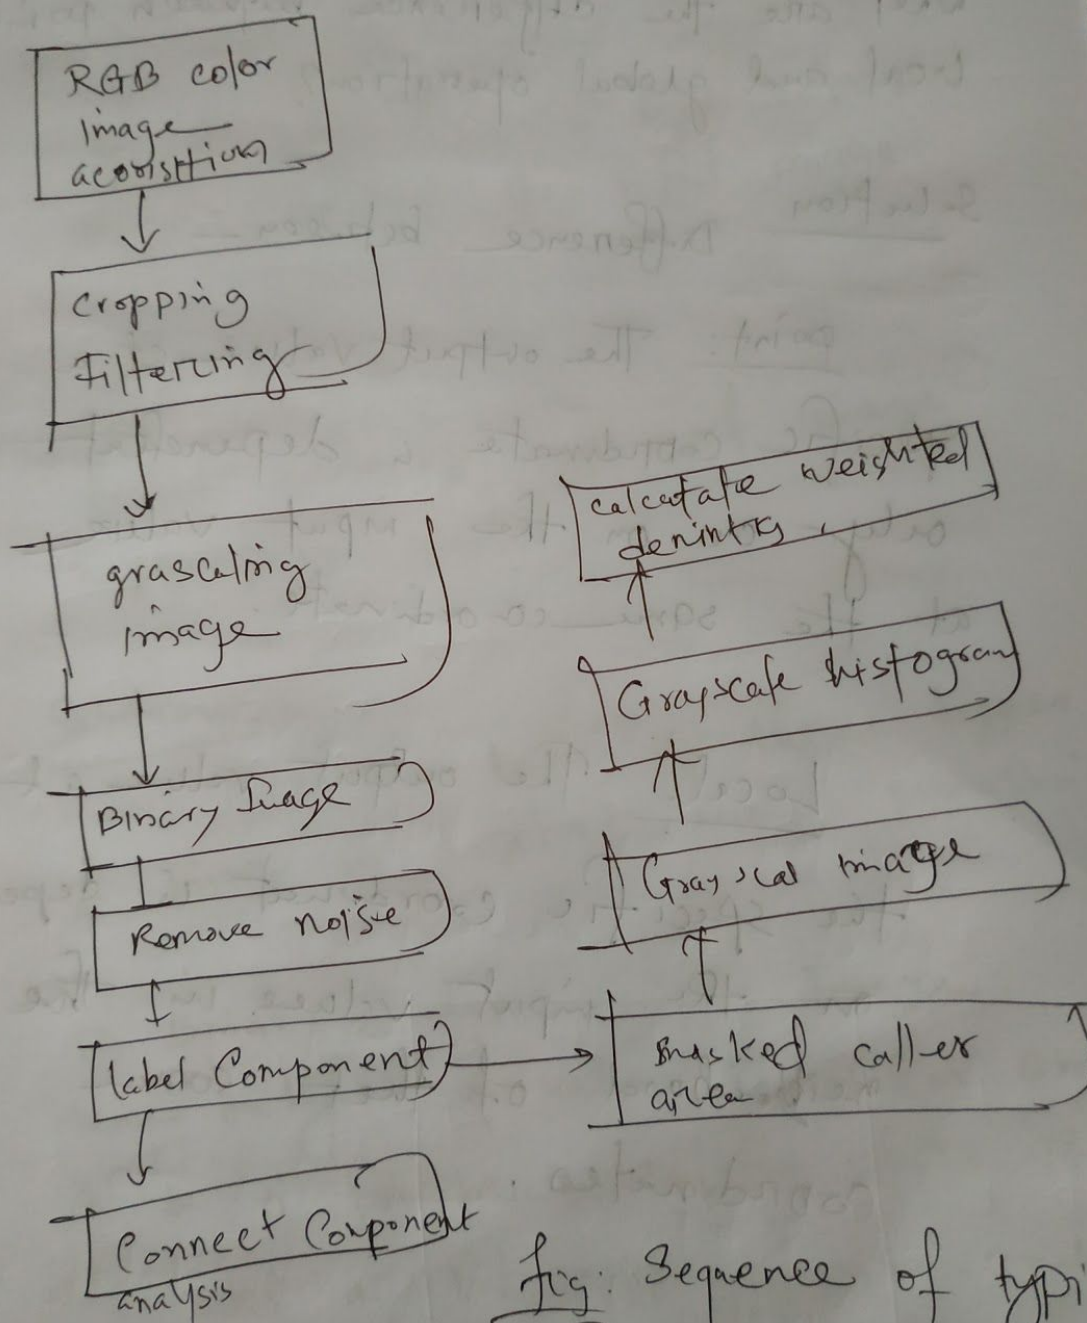 RGB color
image
acorisition
cropping
Filtering
grascaling
image
Binary Image
Remove noise
label Component
Connect Component
analysis
calcutate weighted
denintis
Grayscale histogram
Grayscal image
masked caller
area
fig: Sequence of typi